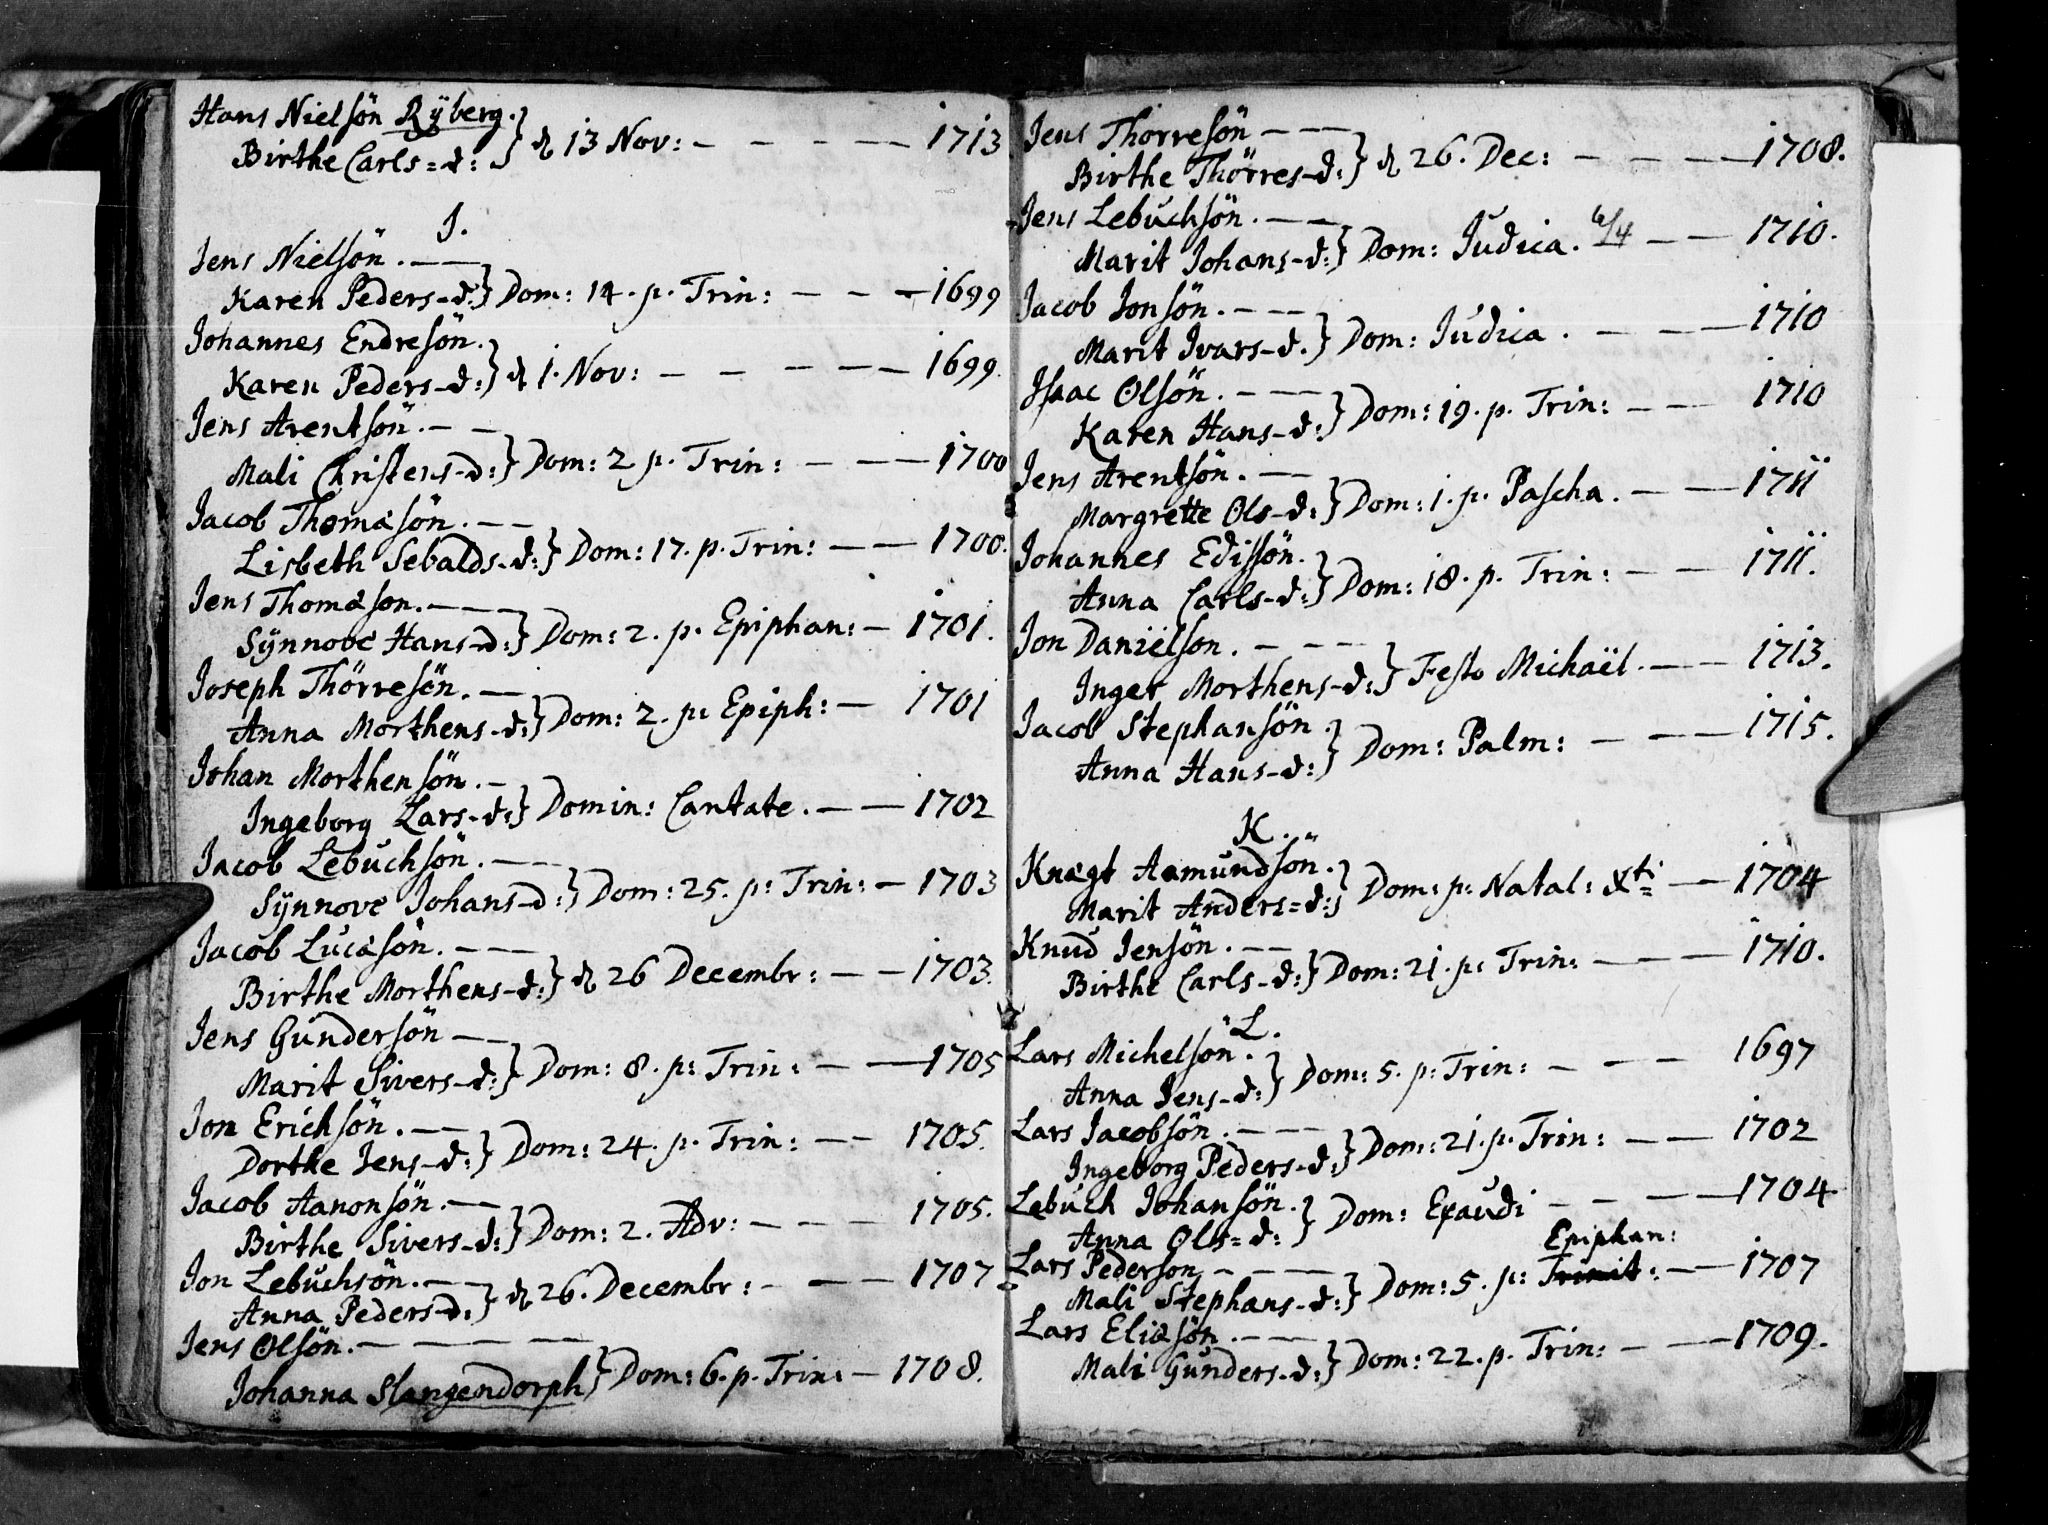 Hans Nielsön Rÿberg.
Birthe Carls=d: } d. 13 Nov: — — — — 1713
J.
Jens Nielsön. — —
Karen Peders-d: } Dom: 14. p. Trin: — — — 1699
Johannes Endresön.
Karen Peders-d: } d. 1. Nov: — — — — — 1699.
Jens Arentsön. — —
Mali Christens-d: } Dom: 2 p. Trin: — — — 1700
Jacob Thomæsön. — —
Lisbeth Sebalds-d: } Dom: 17. p. Trin: — — 1700.
Jens Thomæson. — — —
Sÿnnove Hans-d: } Dom: 2. p. Epiphan: — 1701.
Joseph Thörresön. —
Anna Morthens-d: } Dom: 2. p: Epiph: — 1701
Johan Morthensön. —
Ingeborg Lars-d: } Domin: Cantate. — — 1702
Jacob Lebuchsön. — —
Sÿnnove Johans-d: } Dom: 25. p: Trin: — 1703
Jacob Lucæsön. — — —
Birthe Morthens-d: } d. 26 Decembr: — — 1703.
Jens Gundersön — —
Marit Sivers-d: } Dom: 8. p: Trin: — — 1705
Jon Erichsön. — —
Dorthe Jens-d: } Dom: 24. p. Trin: — — 1705.
Jacob Aanonsön. — —
Birthe Sivers-d: } Dom: 2. Adv: — — — 1705.
Jon Lebuchsön. — —
Anna Peders-d: } d. 26. Decembr: — — — 1707
Jens Olsön. — — — —
Johanna Slangendorph } Dom: 6. p. Trin: — 1708.
Jens Thorresön — — —
Birthe Thörres-d: } d. 26. Dec: — — — — 1708.
Jens Lebuchsön. — —
Marit Johans-d: } Dom: Judica. 6/4 — — 1710.
Jacob Jonsön. — — —
Marit Ivars-d. } Dom: Judica. — — — 1710
Isaac Olsön. — — —
Karen Hans-d: } Dom: 19. p. Trin: — — 1710
Jens Arentsön. — —
Margrette Ols-d: } Dom: 1. p. Pascha. — — 1711
Johannes Edissön.
Anna Carls-d: } Dom: 18. p. Trin: — — 1711.
Jon Daniëlson. — — —
Inger Morthens-d: } Festo Michaël. — — 1713.
Jacob Stephansön.
Anna Hans-d: } Dom: Palm: — — — 1715.
K.
Knægt Aamundsön.
Marit Anders=d: } Dom: p: Natal: Xti — 1704
Knud Jensön. — —
Birthe Carls-d: } Dom: 21. p: Trin: — — — 1710.
L.
Lars Michelsön.
Anna Jens-d: } Dom: 5. p: Trin: — — — 1697
Lars Jacobsön. — — —
Ingeborg Peders-d: } Dom: 21. p. Trin: — — 1702
Lebuch Johansön.
Anna Ols=d: } Dom: Exaudi — — — 1704
Epiphan:
Lars Pederson — — — —
Mali Stephans-d: } Dom: 5. p: Trinit: — — 1707
Lars Eliæsön. — — —
Mali Gunders-d: } Dom: 22. p. Trin: — — 1709.